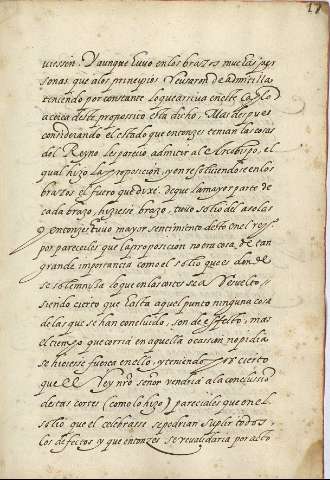 17
viessen. Y aunque huvo en los brazos muchas per
sonas que a los principios reusaron de admitilla
teniendo por constante lo que arriva en este cap.lo
acerca deste proposito esta dicho, Mas despues
considerando el estado que entonzes tenian las cosas
del Reyno les parecio, admitir al Arcobispo, el
qual hizo la proposicion, y en resolviendose en los
brazos el fuero que dixe. de que la mayor parte de
cada brazo, hiziesse brazo, tuvo solio del a solas
y entonzes tuvo mayor sentimiento desto en el reyo
por pareceles que la proposicion no era cosa, de tan
grande importancia como el solio que es donde
se solemniza lo que en las cortes se a resuelto,
siendo cierto que hasta aquel punto ninguna cosa
de las que se han concluido, son de effetto, mas
el tiempo que corria en aquella ocassion no pidia
se hiciesse fuerca en ello, y teniendo por cierto
que el Rey nro señor vendria a la conclusion
destas cortes (como lo hizo) pareciales que en el
solio que el celebrasse se podrian suplir todos
los defectos y que entonzes se revalidaria por acto